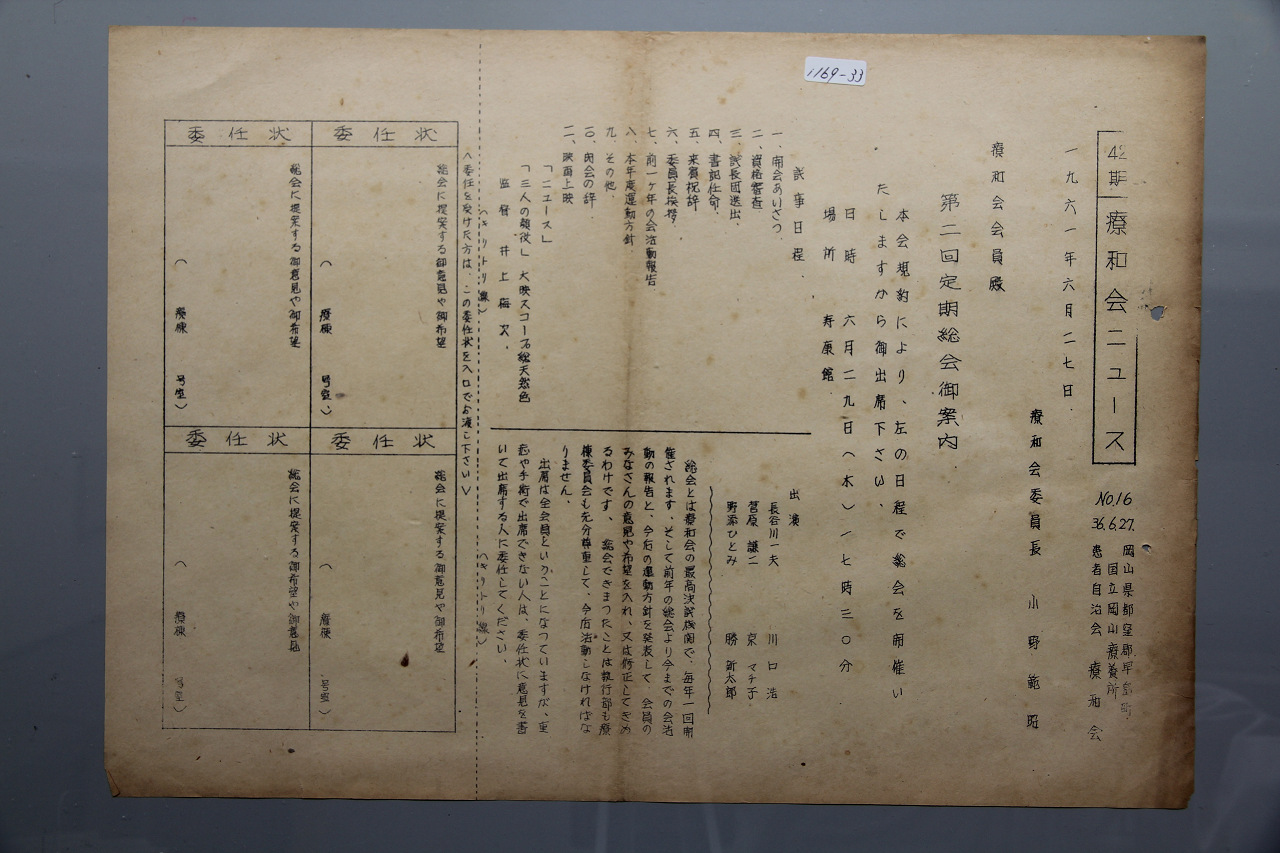 1169-33
42期 療和会ニュース
No.16
36.6.27.
岡山県都窪郡早島町
国立岡山療養所
患者自治会 療和会
一九六一年六月二七日.
療和会委員長 小野範昭
療和会会員殿
第二回定期総会御案内
本会規約により、左の日程で総会を開催い
たしますから御出席下さい、
日時 六月二九日(木)一七時三〇分
場所 寿康館
議事日程
一、開会あいさつ
二、資格審査、
三、議長団選出、
四、書記任命、
五、来賓祝辞
六、委員長挨拶、
七、前一ヶ年の会活動報告
八、本年度運動方針、
九、その他、
一〇、閉会の辞、
一一、映画上映
「ニュース」
「三人の顔役」大映スコープ総天然色
監督 井上梅次、
出演
長谷川一夫 川口浩
菅原謙二 京マチ子
野添ひとみ 勝新太郎
総会とは療和会の最高決議機関で、毎年一回開
催されます、そして前年の総会より今までの会活
動の報告と、今后の運動方針を発表して、会員の
みなさんの意見や希望を入れ、又は修正してきめ
るわけです、総会できまつたことは執行部も療
棟委員会も充分尊重して、今后活動しなければな
りません、
出席は全会員ということになつていますが、重
症や手術で出席できない人は、委任状に意見を書
いて出席する人に委任してください、
(キリトリ線) (キリトリ線)
(委任を受けた方は、この委任状を入口でお渡し下さい)
委任状
総会に提案する御意見や御希望
( 療棟 号室)
委任状
総会に提案する御意見や御希望
( 療棟 号室)
委任状
総会に提案する御意見や御希望
( 療棟 号室)
委任状
総会に提案する御希望や御意見
( 療棟 号室)